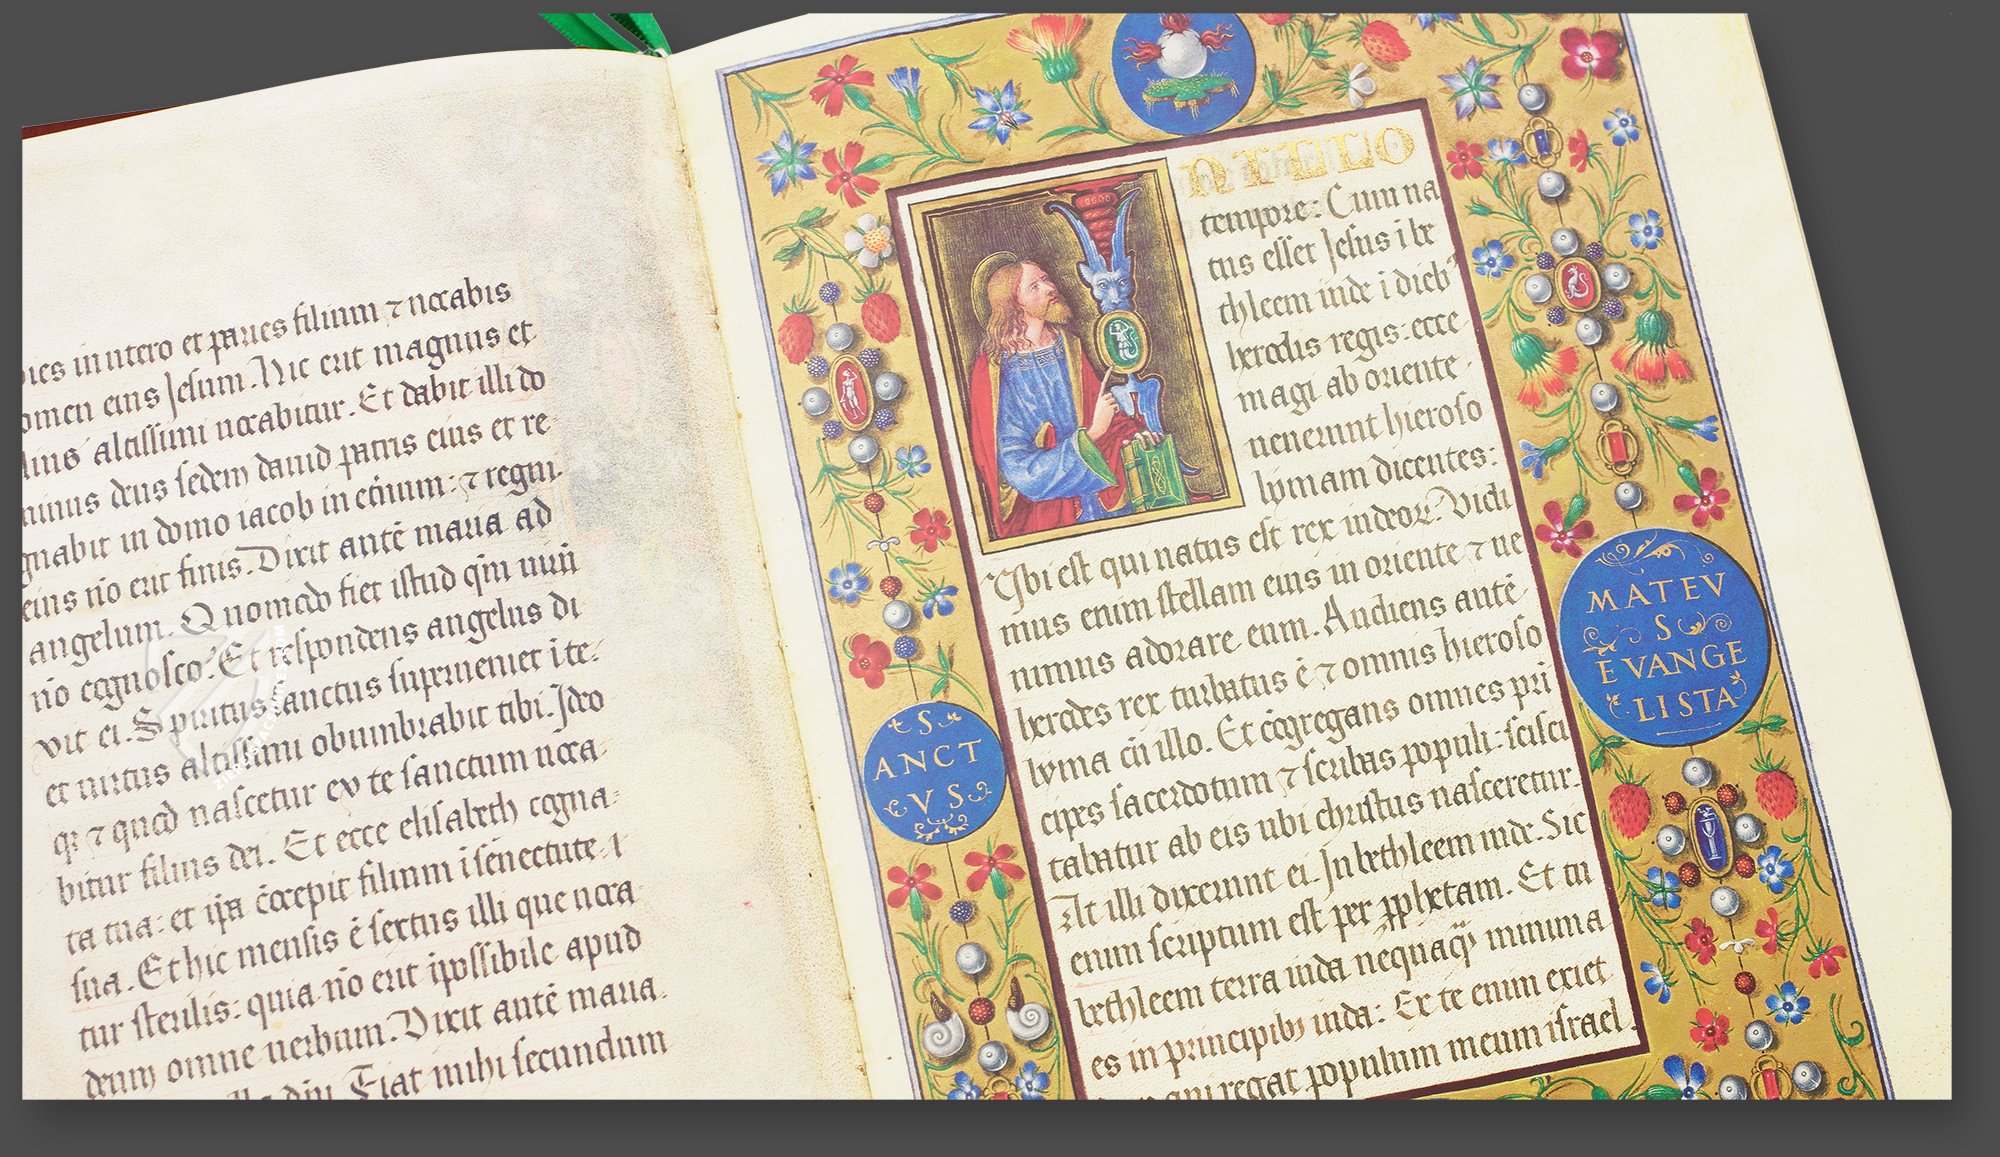 in utero et paries filium ⁊ vocabis
nomen eius Jesum. Hic erit magnus et
filius altissimi vocabitur. Et dabit illi do
minus deus sedem dauid patris eius et re
gnabit in domo iacob in et̄num: ⁊ regni
eius nō erit finis. Dixit autē maria ad
angelum. Quomodo fiet istud qm̄ uirū
nō cognosco. Et respondens angelus di
xit ei. Spiritus sanctus superueniet i te:
et uirtus altissimi obumbrabit tibi. Ideo
qꝫ ⁊ quod nascetur ex te sanctum voca
bitur filius dei. Et ecce elisabeth cogna
ta tua: et ipa cōcepit filium i senectute
sua. Et hic mensis ē sextus illi que voca
tur sterilis: quia nō erit ipossibile apud
deum omne uerbum. Dixit autē maria.
Fiat mihi secundum
NITILO
tempore: Cum na
tus esset Jesus i be
thleem iude i dieb'
herodis regis: ecce
magi ab oriente
uenerunt hieroso
lymam dicentes:
Ubi est qui natus est rex iudeoꝝ. Vidi
mus enim stellam eius in oriente ⁊ ue
nimus adorare eum. Audiens autē
herodes rex turbatus ē ⁊ omnis hieroso
lyma cū illo. Et cōgregans omnes pri
cipes sacerdotum ⁊ scribas populi: scisci
tabatur ab eis ubi christus nasceretur.
At illi dixerunt ei. In bethleem iude. Sic
enim scriptum est per ꝓphetam. Et tu
bethleem terra iuda nequaqꝫ minima
es in principibꝫ iuda: Ex te enim exiet
qui regat populum meum israel
S
ANCT
VS
MATEV
S
EVANGE
LISTA